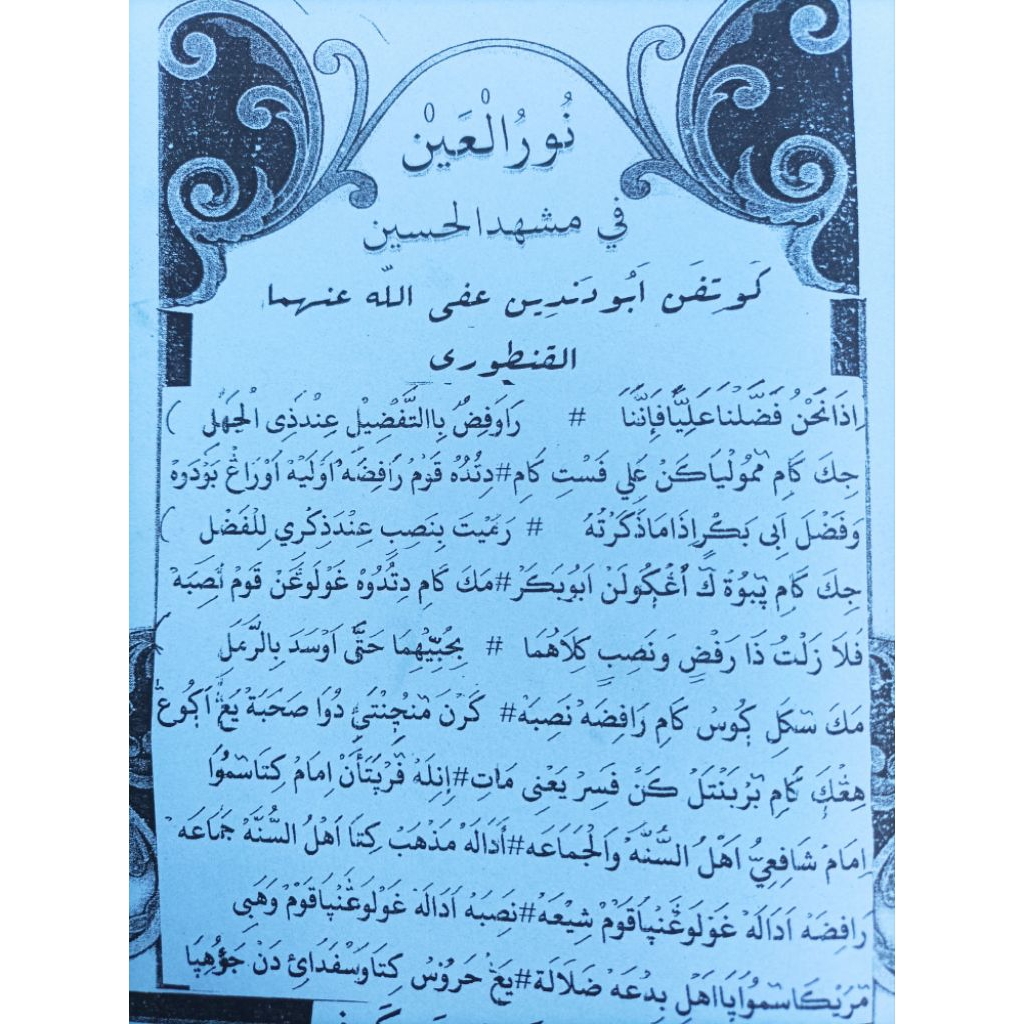 نُورُالْعَيْنْ
في مشهدالحسين
كَوتِفَن اَبُودَندِين عفى اللّه عنهما
القنطورى
اِذَانَحْنُ فَضَّلْنَاعَلِيًّافَإِنَّنَا # رَوَافِضٌ بِاالتَّفْضِيْلِ عِنْدَذِى الْجَهْلِ )
جِكَ كَامِ مَمُولْيَاكَنْ عَلِي فَسْتِ كَامِ#دِتُدُهْ قَوْمْ رَافِضَهْ اَوْلَيهْ اَوْرَاڠْ بَوْدَوهْ
وَفَضْلَ اَبِى بَكْرٍاِذَامَاذَكَرْتُهُ # رَمَيْتَ بِنَصِبٍ عِنْدَذِكْرِي لِلْفَضْلِ )
جِكَ كَامِ پَبُوةْ كَ اُڠْڮُولَنْ اَبُوبَكَرْ#مَكَ كَامِ دِتُدُوهْ غَولَوڠَنْ قَوْمْ نَصِبَهْ
فَلَا زَلْتُ ذَا رَفْضٍ وَنَصِبٍ كِلَاهُمَا # بِحُبِّيْهِمَا حَتَّى اَوْسَدَ بِالرَّمَلِ )
مَكَ سَكَلِ ڮُوسْ كَامِ رَافِضَهْ نَصِبَهْ# كَرَنَ مَنْچِنْتَيْ دُوَا صَحَبَةْ يَڠْ اَڮُوڠْ
هِڠْڮَ كَامِ بَرْبَنْتَلْ كَنْ فَسِرْ يَعْنِى مَاتِ#اِنِلَهْ فَرْيَتَأَنْ اِمَامْ كِتَاسَمُوَا
اِمَامْ شَافِعِيُّ اَهْلُ السُّنَّهْ وَالْجَمَاعَهْ#أَدَالَهْ مَذْهَبْ كِتَا اَهْلُ السُّنَّهْ جَمَاعَهْ
رَافِضَهْ اَدَالَهْ غَوْلَوڠَنْپَاقَوْمْ شِيْعَهْ#نَصِبَهْ اَدَالَهْ غَولَوڠَنْپَاقَوْمْ وَهَبِى
مَرَيْكَاسَمُوَاپَااَهْلِ بِدْعَهْ ضَلَالَة#يَڠْ حَرُوْسْ كِتَاوَسْفَدَائِ دَنْ جَؤُهِپَا